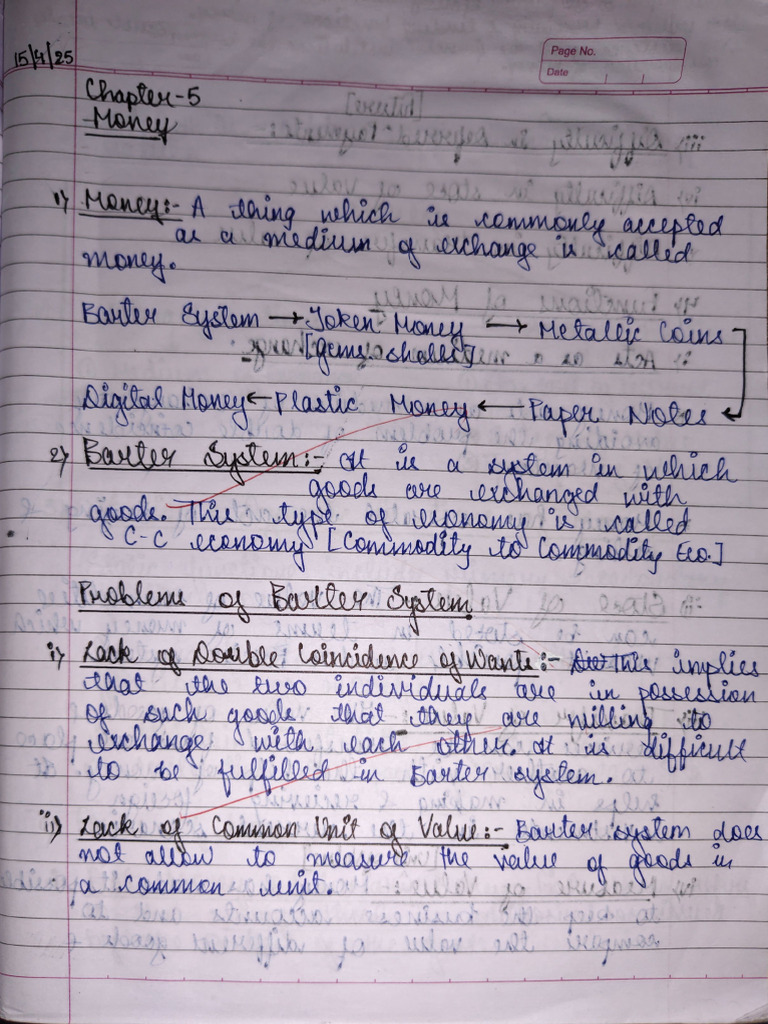 15/4/25
Page No.
Date
Chapter-5
Money
1) Money:- A thing which is commonly accepted
as a medium of exchange is called
money.
Barter System → Token Money → Metallic Coins
[gems, shells]
Digital Money ← Plastic Money ← Paper Notes
2) Barter System:- It is a system in which
goods are exchanged with
goods. This type of economy is called
C-C economy [Commodity to Commodity Eco.]
Problems of Barter System
i) Lack of Double Coincidence of Wants:- This implies
that the two individuals are in possession
of such goods that they are willing to
exchange with each other. It is difficult
to be fulfilled in Barter system.
ii) Lack of Common Unit of Value:- Barter system does
not allow to measure the value of goods in
a common unit.